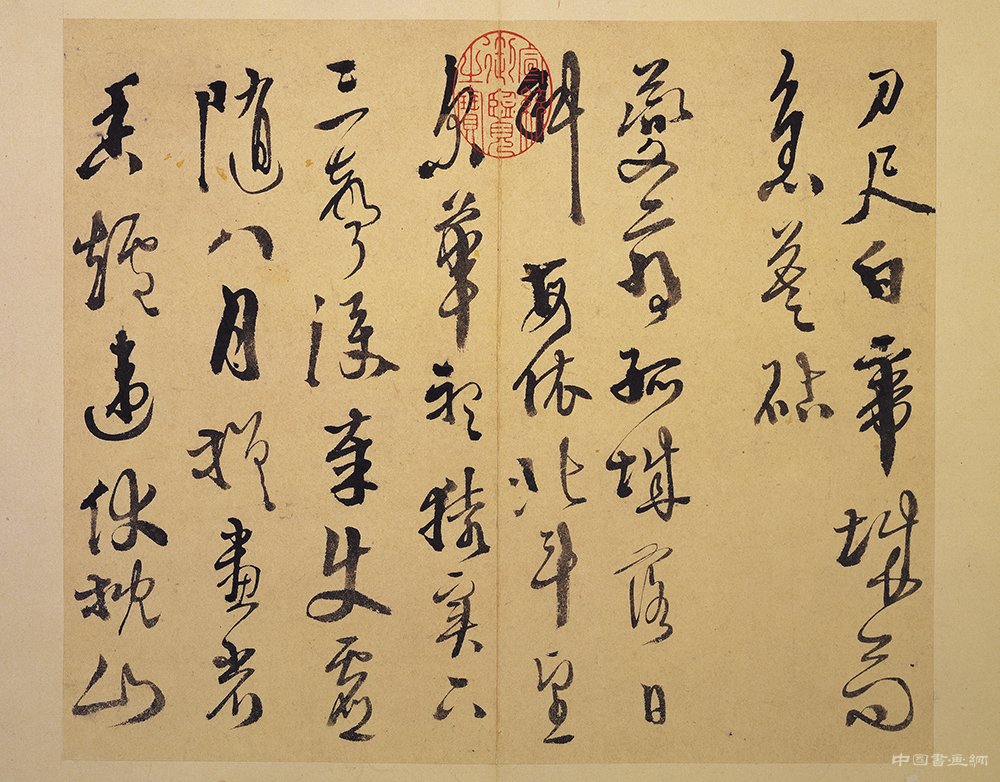 刀尺白帝城高
急暮砧
夔府孤城落日
斜每依北斗望
京華聽猿實下
三聲淚奉使虛
隨八月槎畫省
香爐違伏枕山
宣統御覽之寶
中国書画網